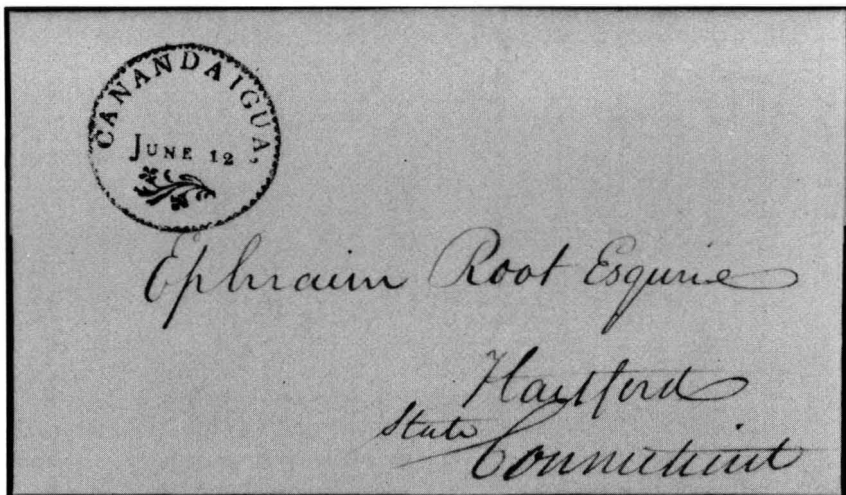 CANANDAIGUA,
JUNE 12
Ephraim Root Esquire
Hartford
State Connecticut